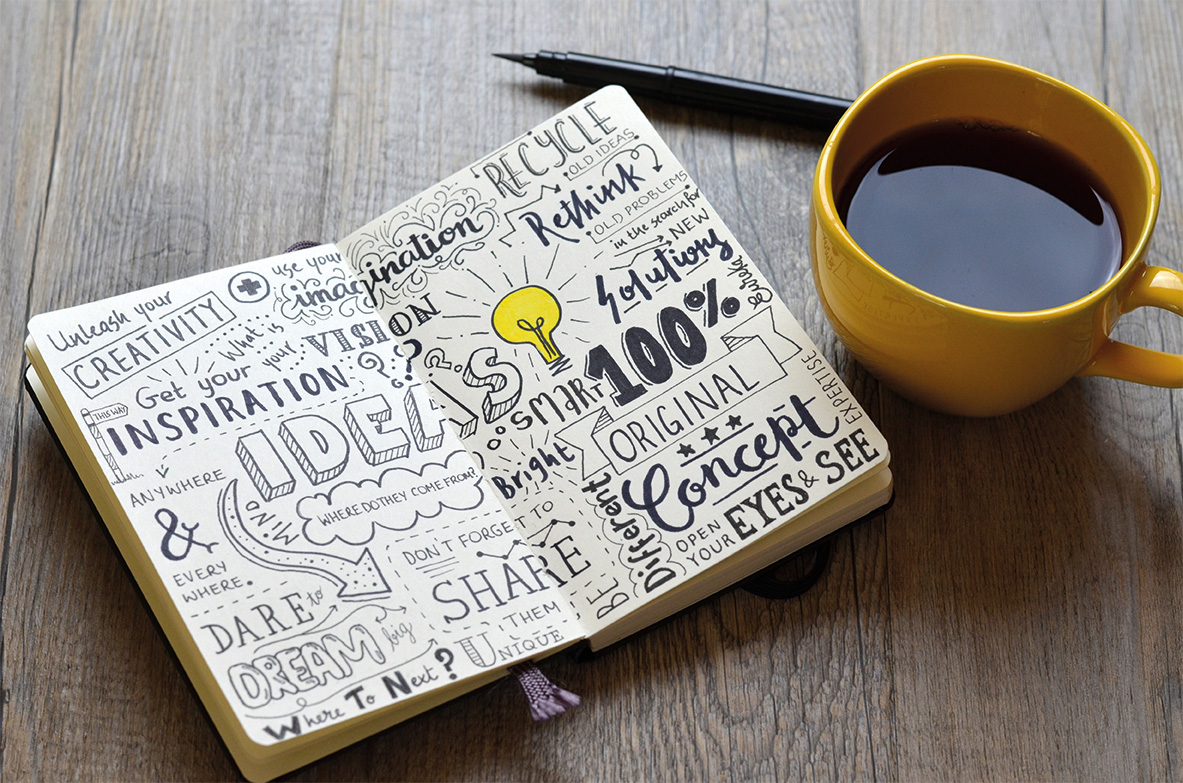 Unleash your
CREATIVITY
use your
imagination
What is
your
VISION
Get your
INSPIRATION
THIS WAY
ANYWHERE
&
EVERY
WHERE.
IDEAS
MIND
WHERE DO THEY COME FROM?
DON'T FORGET TO
SHARE
THEM
DARE to
DREAM big
Where To Next?
U
UNIQUE
RECYCLE
OLD IDEAS
Rethink
OLD PROBLEMS
in the search for
NEW
Solutions
SMART
100%
ORIGINAL
Bright
Concept
EXPERTISE
BE
Different
OPEN
YOUR
EYES & SEE